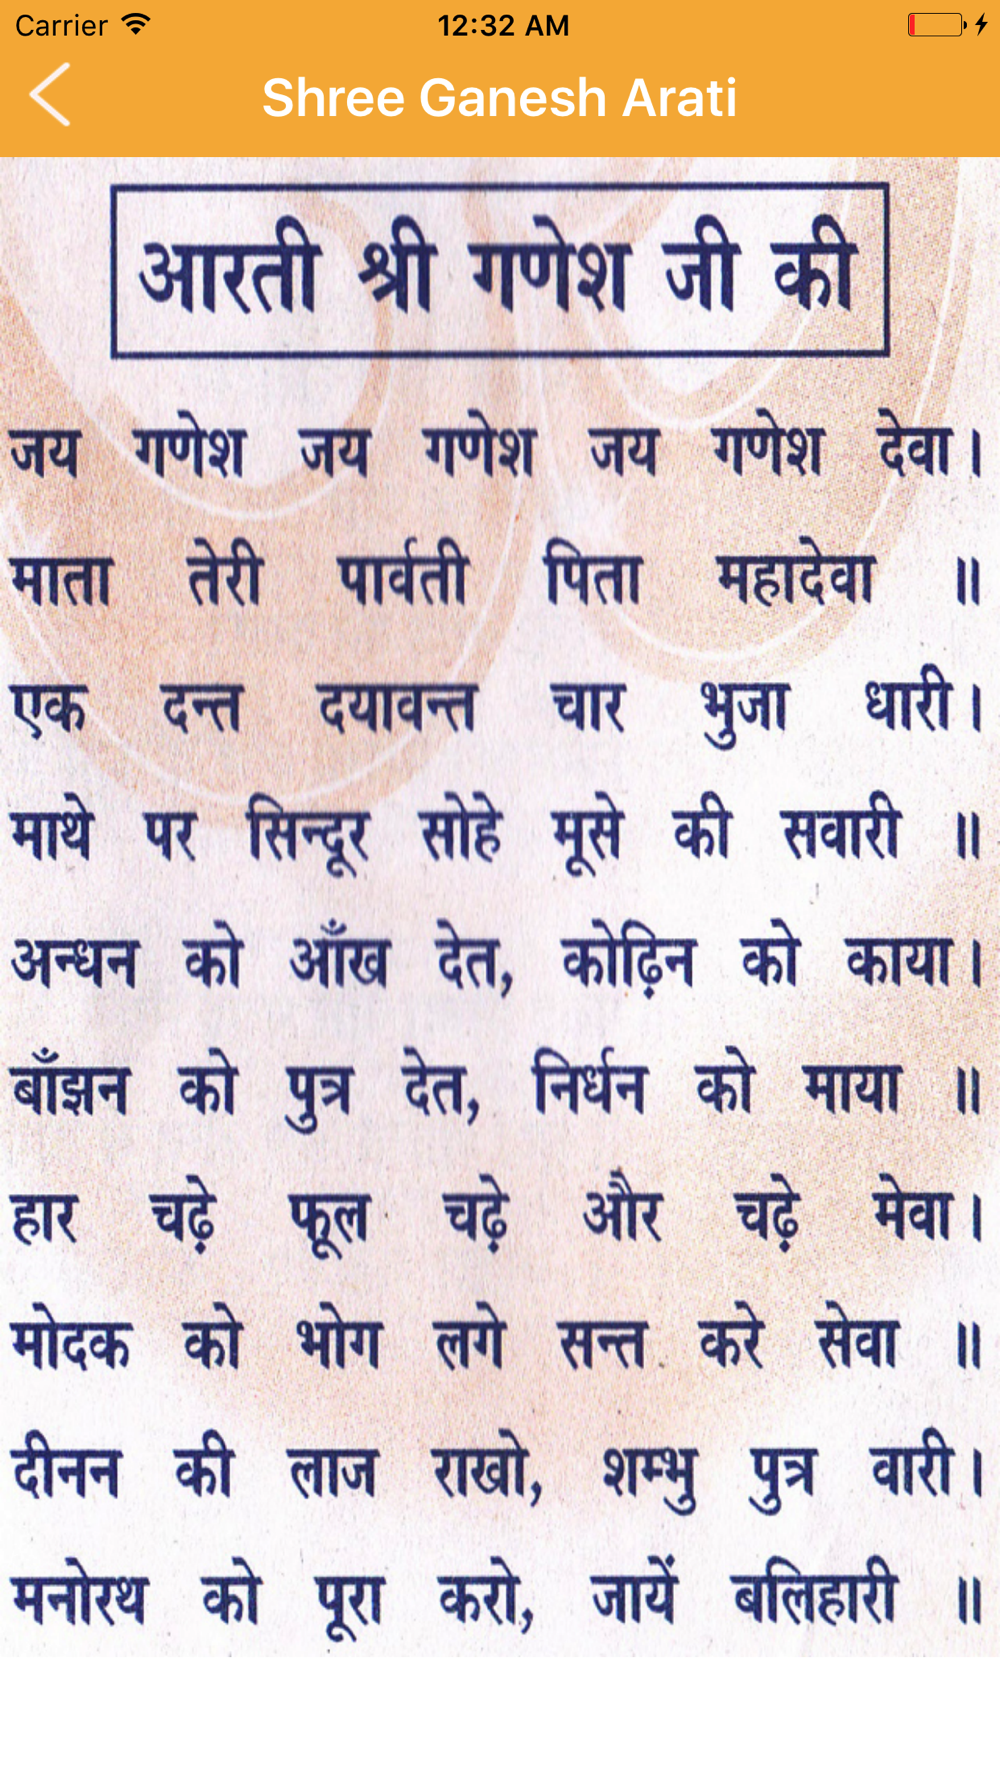 Carrier 12:32 AM
Shree Ganesh Arati
आरती श्री गणेश जी की
जय गणेश जय गणेश जय गणेश देवा।
माता तेरी पार्वती पिता महादेवा ॥
एक दन्त दयावन्त चार भुजा धारी।
माथे पर सिन्दूर सोहे मूसे की सवारी ॥
अन्धन को आँख देत, कोढ़िन को काया।
बाँझन को पुत्र देत, निर्धन को माया ॥
हार चढ़े फूल चढ़े और चढ़े मेवा।
मोदक को भोग लगे सन्त करे सेवा ॥
दीनन की लाज राखो, शम्भु पुत्र वारी।
मनोरथ को पूरा करो, जायें बलिहारी ॥